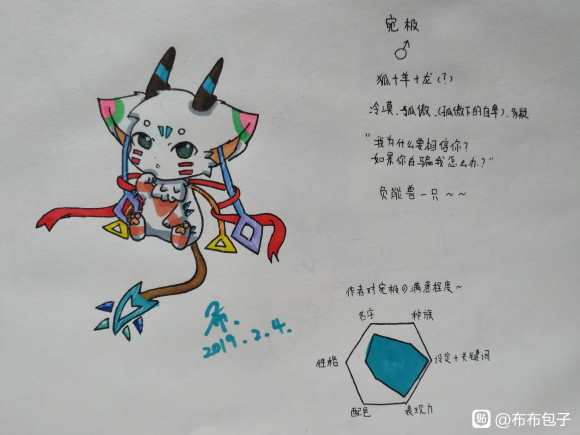 宛极
♂
狐+羊+龙(?)
冷漠、孤傲、(孤傲下的自卑)、多疑
"我为什么要相信你?
如果你在骗我怎么办?"
负能兽一只~~
作者对宛极の满意程度~
名字
种族
性格
设定+关键词
配色
表现力
希.
2019.2.4.
贴 @布布包子